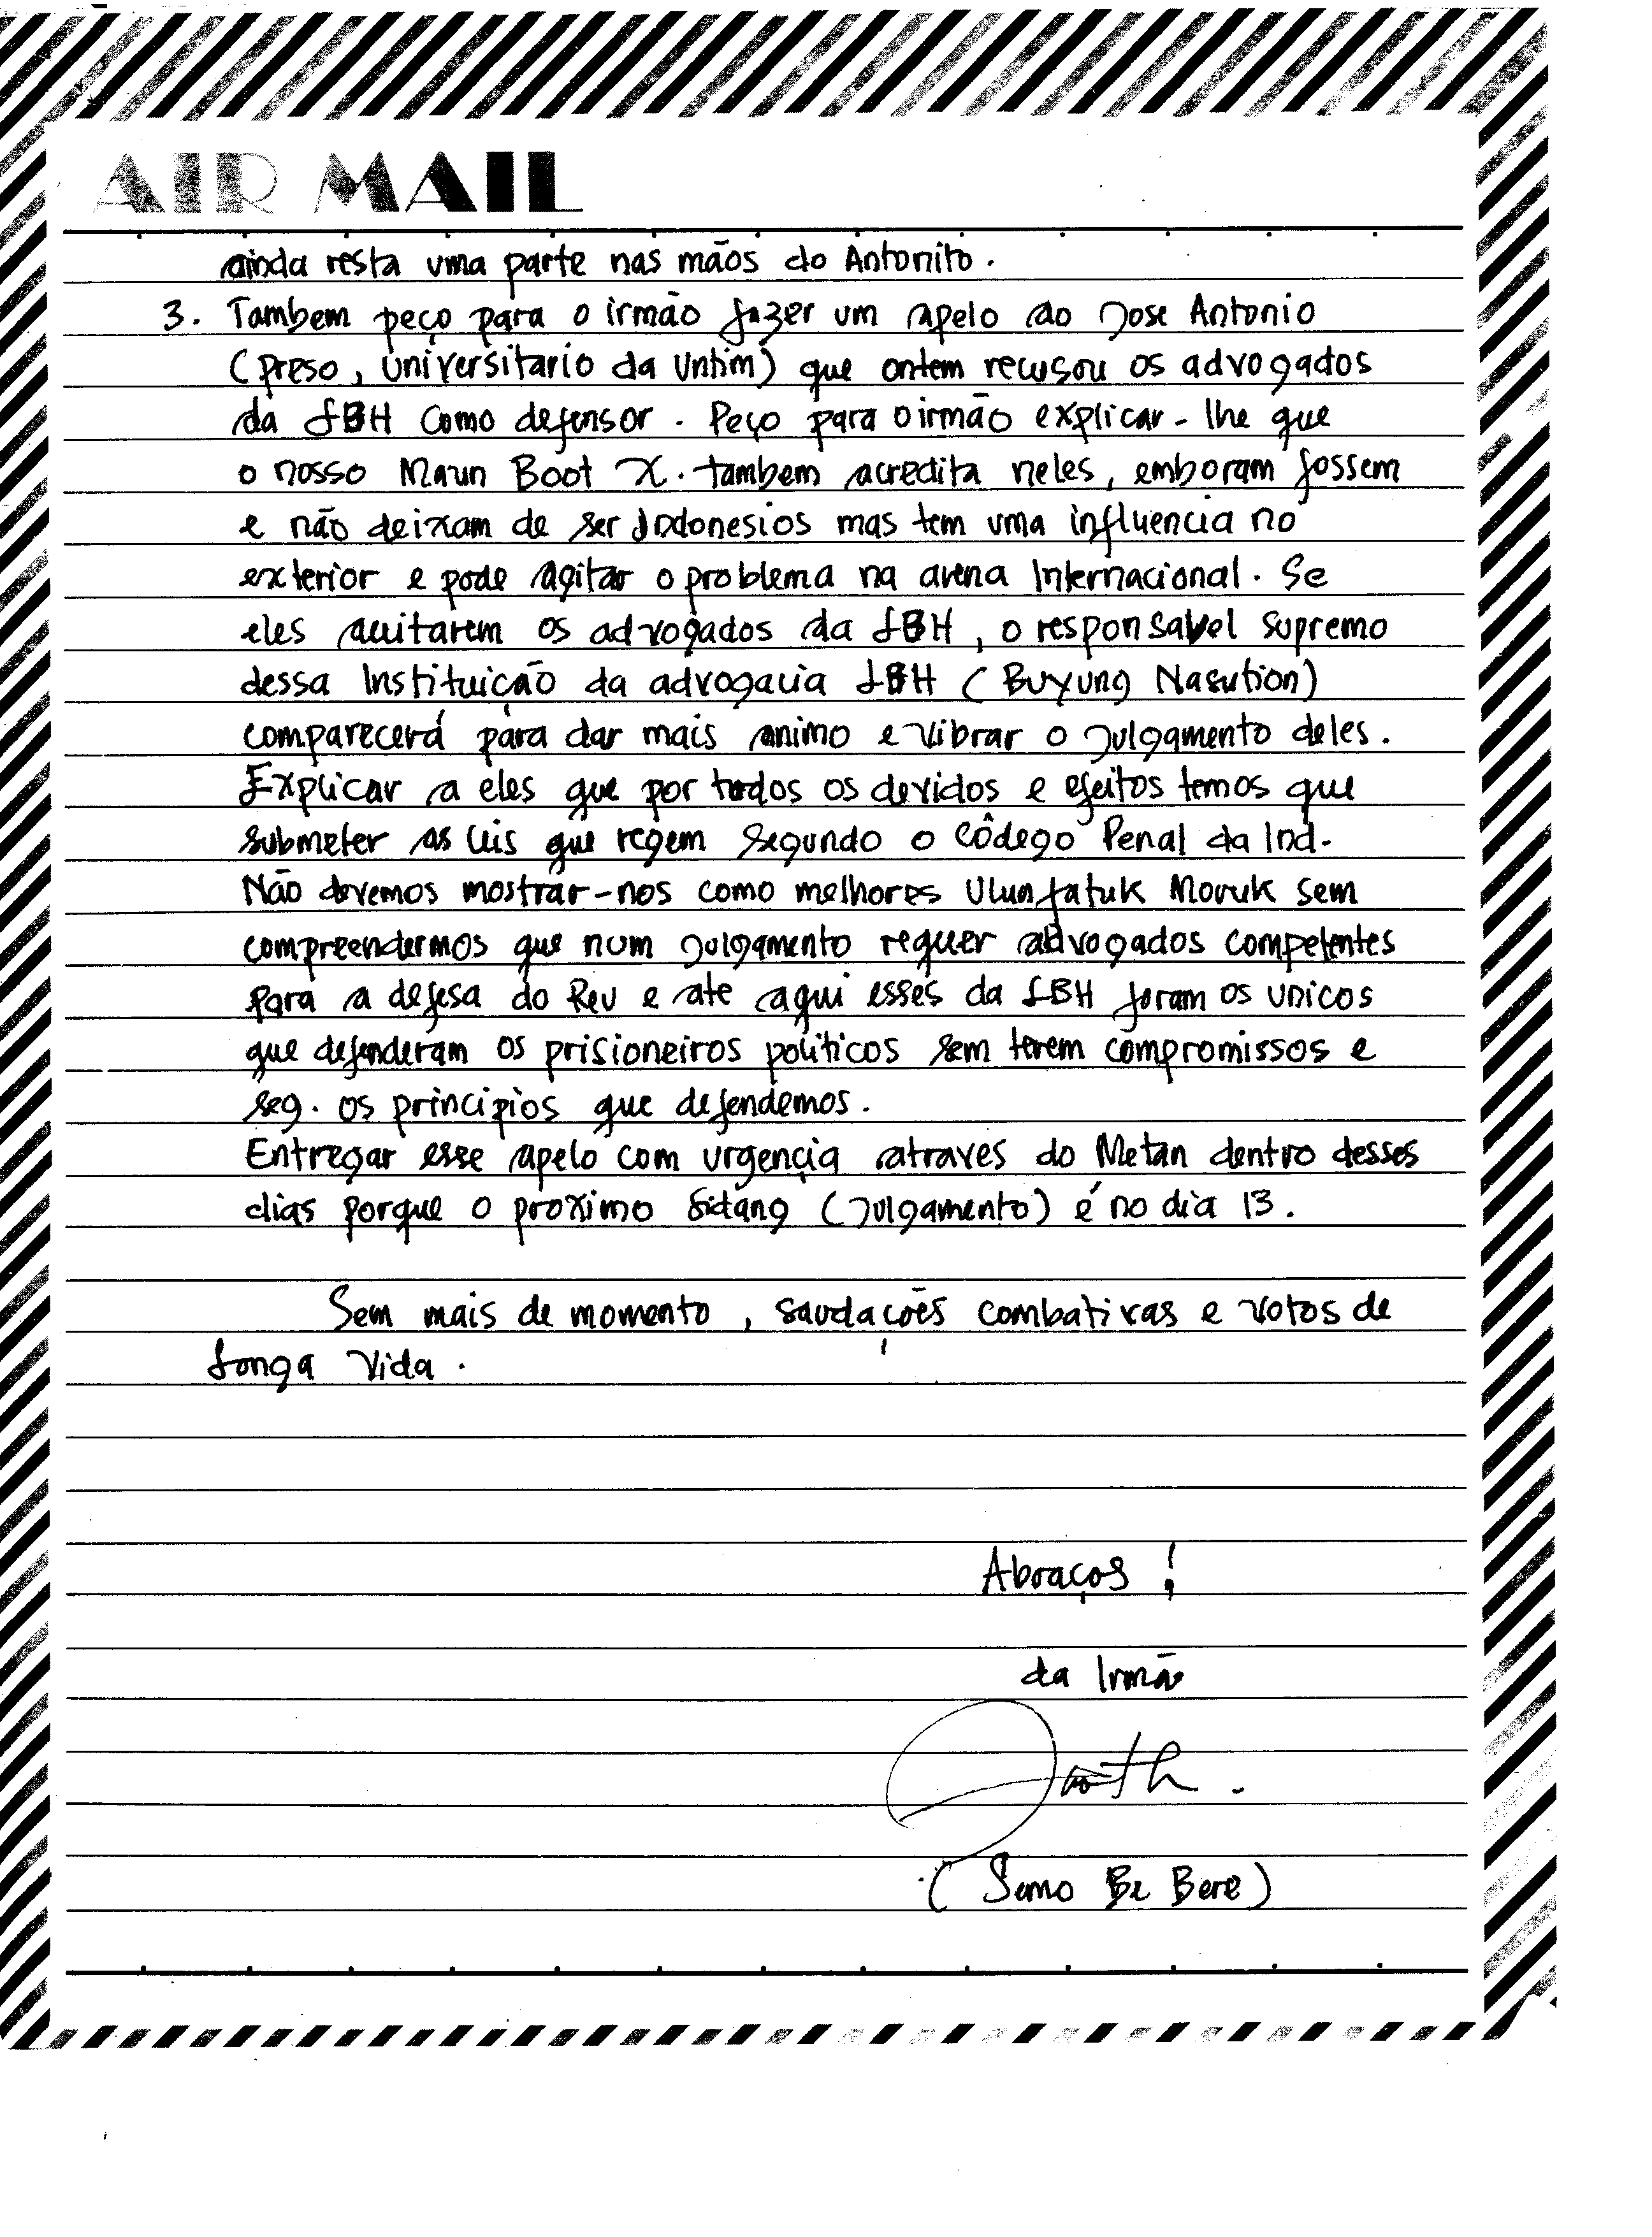 AIR MAIL
ainda resta uma parte nas mãos do Antonito.
3. Tambem peço para o irmão fazer um apelo ao Jose Antonio
(preso, universitario da Untim) que ontem recusou os advogados
da LBH como defensor. Peço para o irmão explicar-lhe que
o nosso Maun Boot X. tambem acredita neles, emboram fossem
e não deixam de ser Indonesios mas tem uma influencia no
exterior e pode agitar o problema na arena Internacional. Se
eles aceitarem os advogados da LBH, o responsavel supremo
dessa Instituição da advogacia LBH (Buyung Nasution)
comparecerá para dar mais animo e vibrar o Julgamento deles.
Explicar a eles que por todos os devidos e efeitos temos que
submeter as leis que regem segundo o Côdego Penal da Ind.
Não devemos mostrar-nos como melhores Ulun fatuk Moruk sem
compreendermos que num julgamento requer advogados competentes
para a defesa do Reu e ate aqui esses da LBH foram os unicos
que defenderam os prisioneiros politicos sem terem compromissos e
seg. os principios que defendemos.
Entregar esse apelo com urgença atraves do Metan dentro desses
dias porque o proximo Sidang (Julgamento) é no dia 13.
Sem mais de momento, saudações combativas e votos de
longa vida.
Abraços!
da Irmã
(Bz Bere)